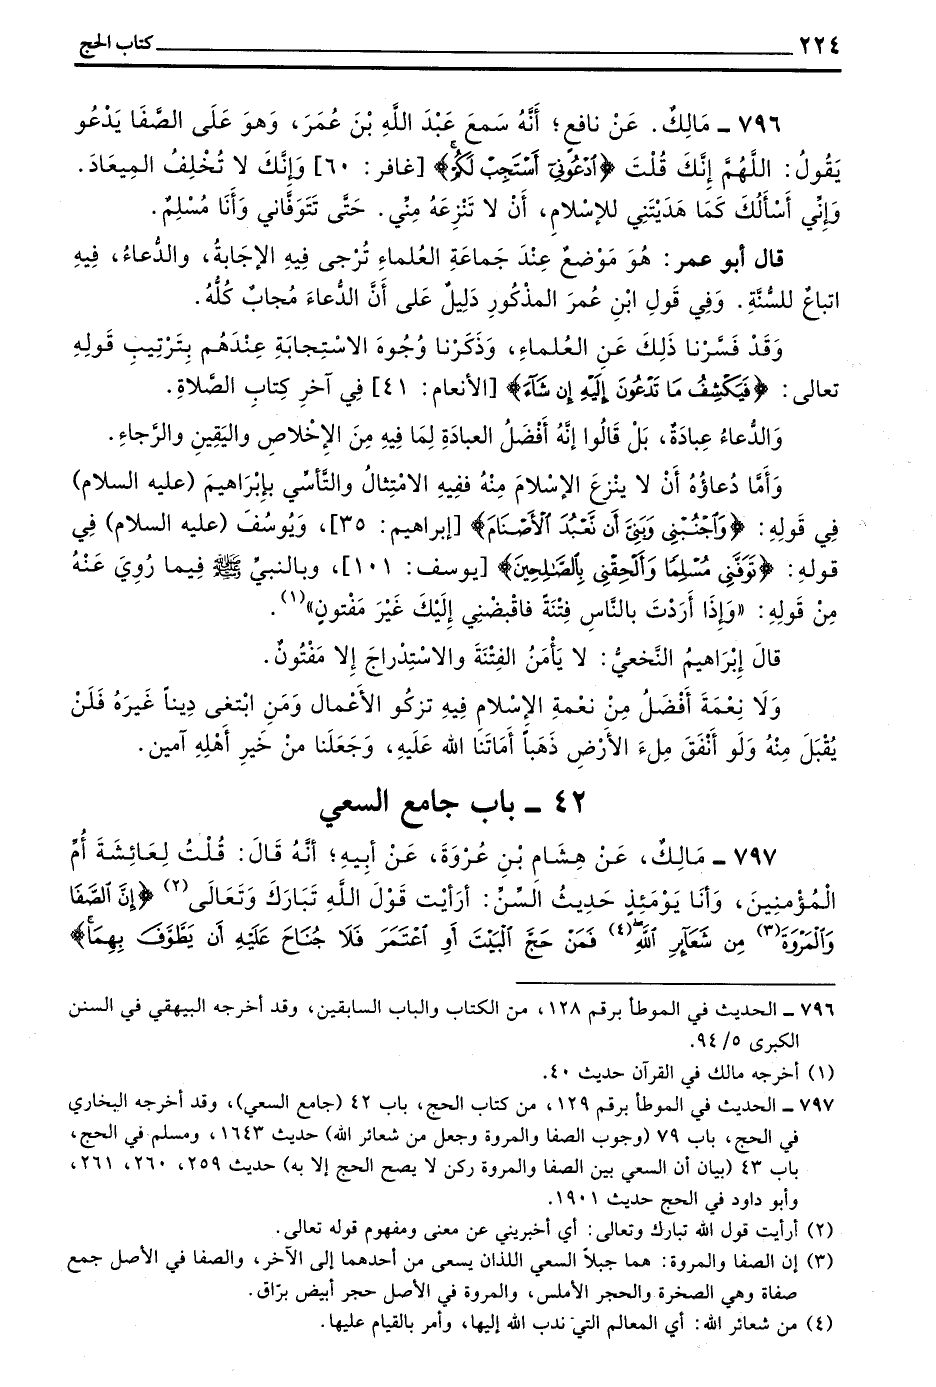 ٢٢٤ كتاب الحج
٧٩٦ ـ مَالِكٌ. عَنْ نافع؛ أَنَّهُ سَمعَ عَبْدَ اللَّهِ بْنَ عُمَرَ، وَهوَ عَلَى الصَّفَا يَدْعُو
يَقُولُ: اللَّهُمَّ إِنَّكَ قُلْتَ ﴿ٱدْعُونِىٓ أَسْتَجِبْ لَكُمْۚ﴾ [غافر: ٦٠] وَإِنَّكَ لا تُخْلِفُ المِيعَادَ.
وَإِنِّي أَسْأَلُكَ كَمَا هَدَيْتَنِي للإسْلامِ، أَنْ لا تَنْزِعَهُ مِنِّي. حَتَّى تَتَوَفَّاني وَأَنَا مُسْلِمٌ.
قال أبو عمر: هُوَ مَوْضعٌ عِنْدَ جَمَاعَةِ العُلماءِ تُرْجى فِيهِ الإجَابةُ، والدُّعاءُ، فِيهِ
اتباعٌ للسُّنَّةِ. وَفِي قَولِ ابْنِ عُمرَ المذْكورِ دَلِيلٌ عَلى أَنَّ الدُّعاءَ مُجابٌ كُلُّهُ.
وَقَدْ فَسَّرْنا ذَلِكَ عَنِ العُلماءِ، وَذَكَرْنا وُجُوهَ الاسْتِجابَةِ عِنْدَهُم بِتَرْتِيبِ قَولِهِ
تعالى: ﴿فَيَكْشِفُ مَا تَدْعُونَ إِلَيْهِ إِن شَآءَ﴾ [الأنعام: ٤١] فِي آخرِ كِتابِ الصَّلاةِ.
وَالدُّعاءُ عِبادَةٌ، بَلْ قَالُوا إِنَّهُ أَفْضَلُ العبادَةِ لِمَا فِيهِ مِنَ الإخْلاصِ واليَقِينِ والرَّجاءِ.
وَأَمَّا دُعاؤُهُ أَنْ لا يَنْزِعَ الإسْلامَ مِنْهُ ففِيهِ الامْتِثالُ والتَّأسِّي بِإِبْرَاهيمَ (عليه السلام)
فِي قَولِهِ: ﴿وَٱجْنُبْنِى وَبَنِىَّ أَن نَّعْبُدَ ٱلْأَصْنَامَ﴾ [إبراهيم: ٣٥]، وَيُوسُفَ (عليه السلام) فِي
قولهِ: ﴿تَوَفَّنِى مُسْلِمًا وَأَلْحِقْنِى بِٱلصَّٰلِحِينَ﴾ [يوسف: ١٠١]، وبالنبيِّ ﷺ فِيما رُوِيَ عَنْهُ
مِنْ قَولِهِ: «وَإِذَا أَرَدْتَ بالنَّاسِ فِتْنَةً فاقْبضْنِي إِلَيْكَ غَيْرَ مَفْتونٍ»(١).
قالَ إِبْرَاهيمُ النَّخعيُّ: لا يَأْمَنُ الفِتْنَةَ والاسْتِدْراجَ إِلا مَفْتُونٌ.
وَلَا نِعْمَةَ أَفْضَلُ مِنْ نعْمةِ الإسْلامِ فِيه تزكُو الأَعْمال وَمَنِ ابْتغى دِيناً غَيرَهُ فَلَنْ
يُقْبَلَ مِنْهُ وَلَو أَنْفَقَ مِلءَ الأَرْضِ ذَهَباً أَمَاتَنا الله عَلَيهِ، وَجَعَلَنا منْ خَيرِ أَهْلِهِ آمين.
٤٢ ـ باب جامع السعي
٧٩٧ ـ مَالِكٌ، عَنْ هِشَامِ بْنِ عُرْوَةَ، عَنْ أبِيهِ؛ أَنَّهُ قَالَ: قُلْتُ لِعَائِشَةَ أُمِّ
الْمُؤْمنِينَ، وَأَنَا يَوْمَئِذٍ حَدِيثُ السِّنِّ: أَرَأَيْتِ قَوْلَ اللَّهِ تَبَارَكَ وَتَعَالَى(٢) ﴿إِنَّ ٱلصَّفَا
وَٱلْمَرْوَةَ(٣) مِن شَعَآئِرِ ٱللَّهِۖ(٤) فَمَنْ حَجَّ ٱلْبَيْتَ أَوِ ٱعْتَمَرَ فَلَا جُنَاحَ عَلَيْهِ أَن يَطَّوَّفَ بِهِمَاۚ﴾
٧٩٦ ـ الحديث في الموطأ برقم ١٢٨، من الكتاب والباب السابقين، وقد أخرجه البيهقي في السنن
الكبرى ٥/ ٩٤.
(١) أخرجه مالك في القرآن حديث ٤٠.
٧٩٧ ـ الحديث في الموطأ برقم ١٢٩، من كتاب الحج، باب ٤٢ (جامع السعي)، وقد أخرجه البخاري
في الحج، باب ٧٩ (وجوب الصفا والمروة وجعل من شعائر الله) حديث ١٦٤٣، ومسلم في الحج،
باب ٤٣ (بيان أن السعي بين الصفا والمروة ركن لا يصح الحج إلا به) حديث ٢٥٩، ٢٦٠، ٢٦١،
وأبو داود في الحج حديث ١٩٠١.
(٢) أرأيت قول الله تبارك وتعالى: أي أخبريني عن معنى ومفهوم قوله تعالى.
(٣) إن الصفا والمروة: هما جبلاً السعي اللذان يسعى من أحدهما إلى الآخر، والصفا في الأصل جمع
صفاة وهي الصخرة والحجر الأملس، والمروة في الأصل حجر أبيض برّاق.
(٤) من شعائر الله: أي المعالم التي ندب الله إليها، وأمر بالقيام عليها.